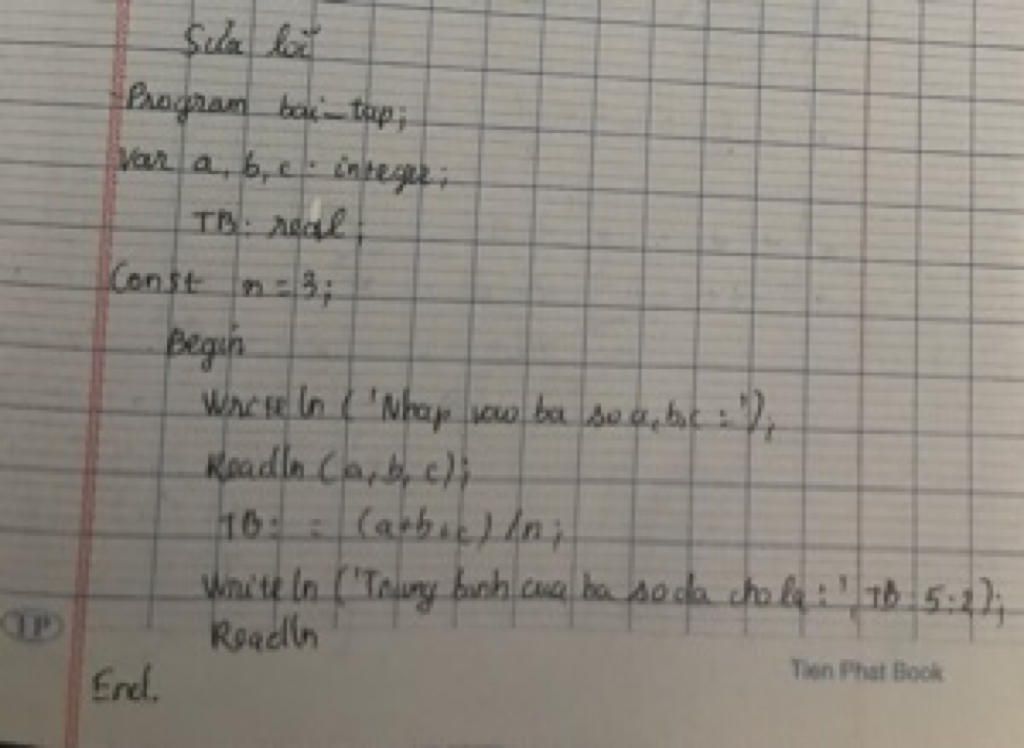 Sửa lỗi
Program bai_tap;
Var a, b, c : integer;
TB : real;
Const n = 3;
Begin
Writeln ('Nhap vao ba so a, b, c :');
Readln (a, b, c);
TB : = (a+b+c) /n;
Writeln ('Trung binh cua ba so da cho la : ', TB : 5 : 2);
Readln
End.
TP
Tien Phat Book